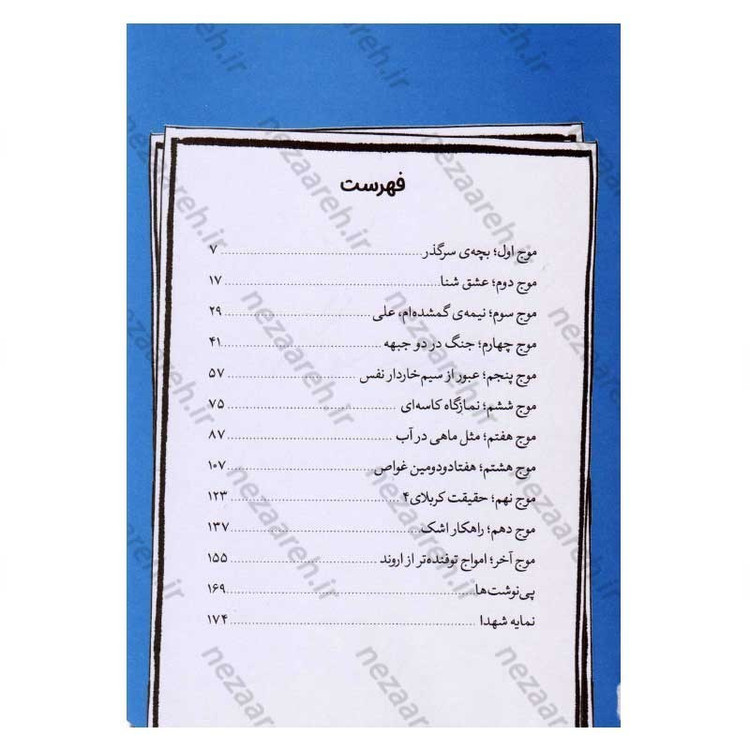 فهرست
موج اول؛ بچه‌ی سرگذر ........ ۷
موج دوم؛ عشق شنا ........ ۱۷
موج سوم؛ نیمه‌ی گمشده‌ام، علی ........ ۲۹
موج چهارم؛ جنگ در دو جبهه ........ ۴۱
موج پنجم؛ عبور از سیم‌خاردار نفس ........ ۵۷
موج ششم؛ نمازگاه کاسه‌ای ........ ۷۵
موج هفتم؛ مثل ماهی در آب ........ ۸۷
موج هشتم؛ هفتادودومین غواص ........ ۱۰۷
موج نهم؛ حقیقت کربلای۴ ........ ۱۲۳
موج دهم؛ راهکار اشک ........ ۱۳۷
موج آخر؛ امواج توفنده‌تر از اروند ........ ۱۵۵
پی‌نوشت‌ها ........ ۱۶۹
نمایه شهدا ........ ۱۷۴
nezaareh.ir